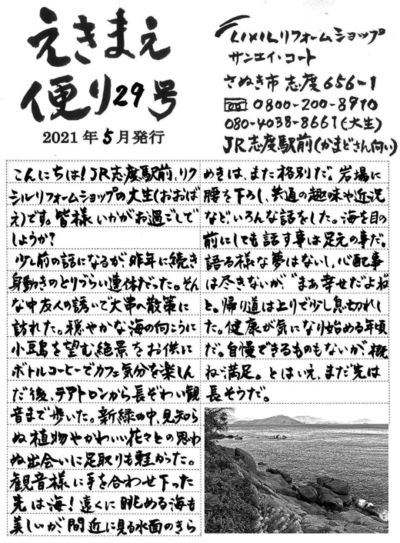 えきまえ
便り29号
2021年5月発行
LIXILリフォームショップ
サンエイ・コート
さぬき市志度656-1
0800-200-8970
080-4038-8661(大生)
JR志度駅前(かまどさん向い)
こんにちは!JR志度駅前、リク
シルリフォームショップの大生(おおば
え)です。皆様いかがお過ごしで
しょうか?
少し前の話になるが、昨年に続き
身動きのとりづらい連休だった。そん
な中友人の誘いで大串へ散策に
訪れた。穏やかな海の向こうに
小豆島を望む絶景をお供に
ボトルコーヒーでカフェ気分を楽しん
だ後、テアトロンから長ぞわい観
音まで歩いた。新緑の中、見知ら
ぬ植物やかわいい花々との思わ
ぬ出会いに足取りも軽かった。
観音様に手を合わせ下った
先は海!遠くに眺める海も
美しいが、間近に見る水面のきら
めきは、また格別だ。岩場に
腰を下ろし、共通の趣味や近況
などいろんな話をした。海を目の
前にしても話す事は足元の事だ。
語る様な夢はないし、心配事
は尽きないが、“まぁ幸せだよね”
と。帰り道は上りで少し息切れし
た。健康が気になり始める年頃
だ。自慢できるものもないが、概
ね満足。とはいえ、まだ先は
長そうだ。